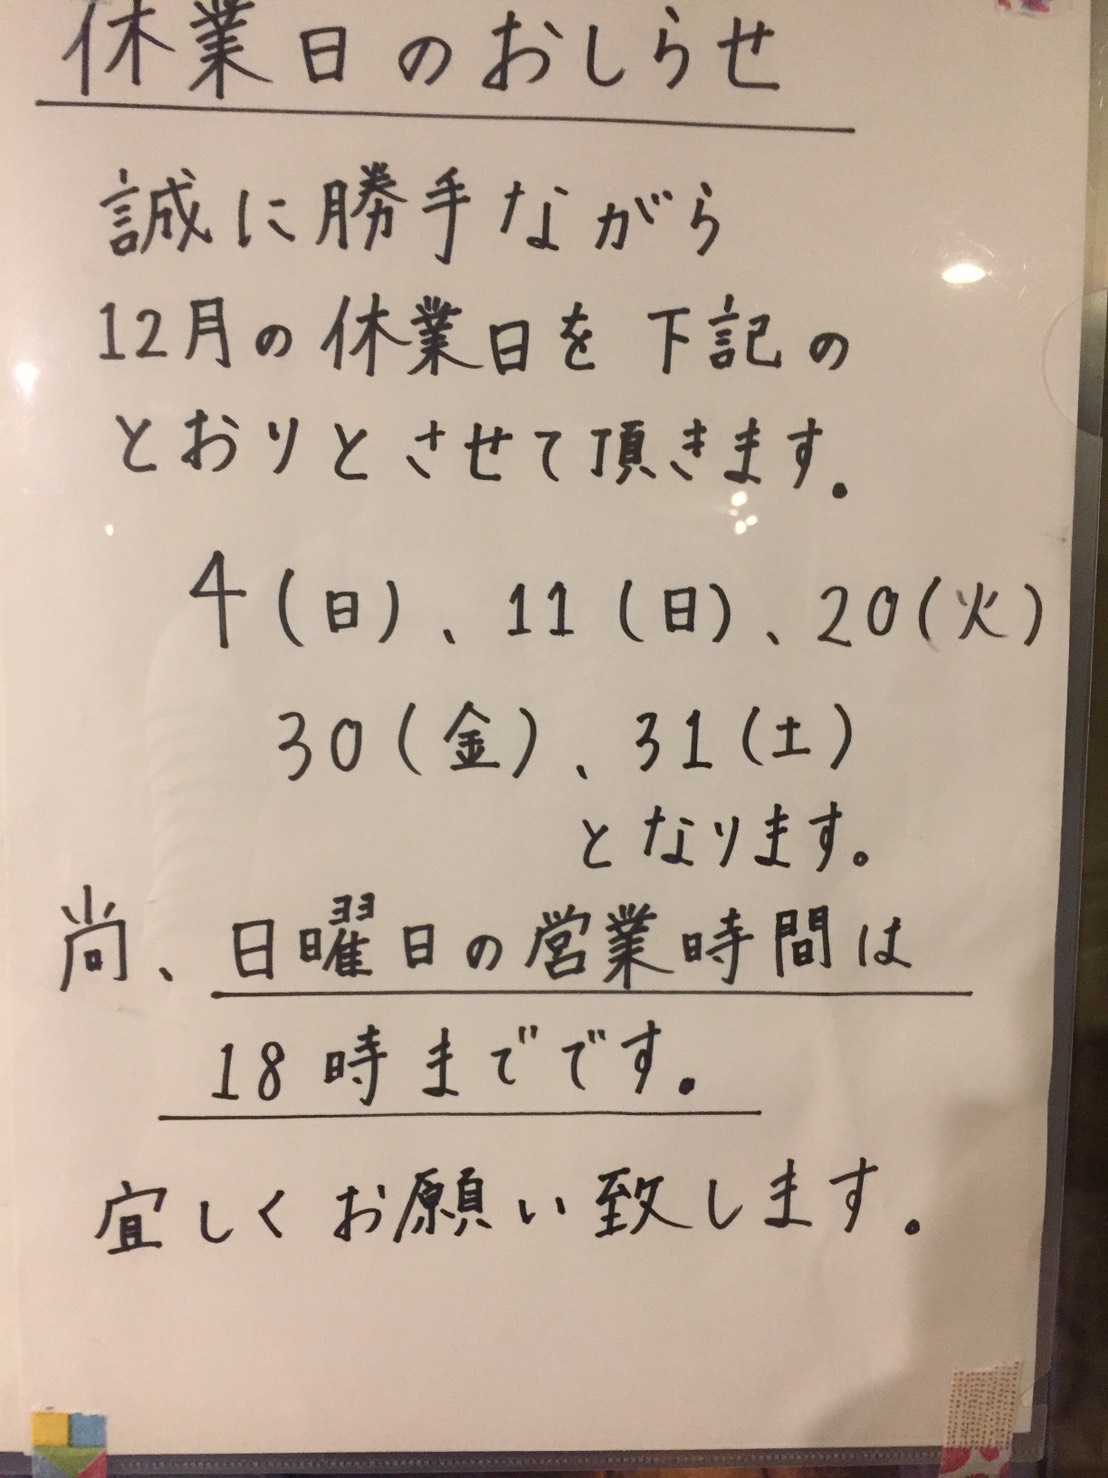 休業日のおしらせ
誠に勝手ながら
12月の休業日を下記の
とおりとさせて頂きます.
4(日)、11(日)、20(火)
30(金)、31(土)
となります。
尚、日曜日の営業時間は
18時までです.
宜しくお願い致します.